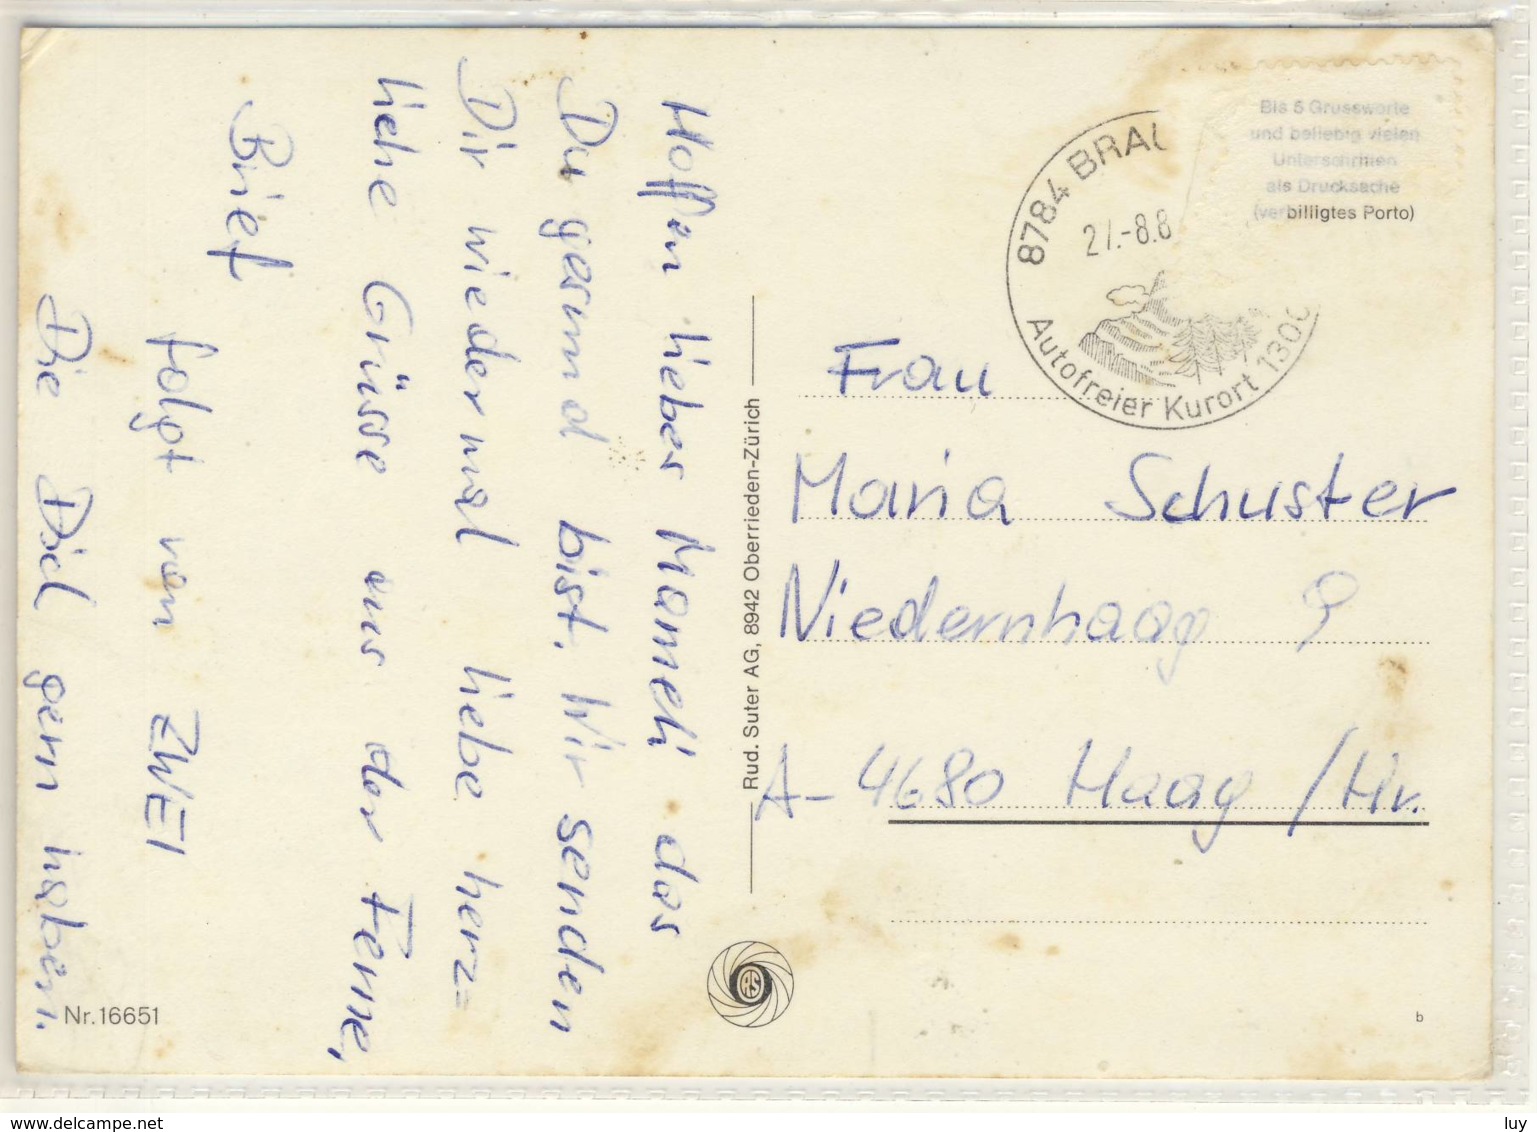 Hoffen liebes Mameli das
Du gesund bist. Wir senden
Dir wieder mal liebe herz=
liche Grüsse aus der Ferne,
Brief
folgt von ZWEI
Die Dich gern haben.
Nr.16651
Rud. Suter AG, 8942 Oberrieden-Zürich
8784 BRAU
27.-8.8
Autofreier Kurort 1300
Bis 5 Grussworte
und beliebig vielen
Unterschriften
als Drucksache
(verbilligtes Porto)
Frau
Maria Schuster
Niedernhaag 9
A-4680 Haag/Hr.
b
www.delcampe.net
luy